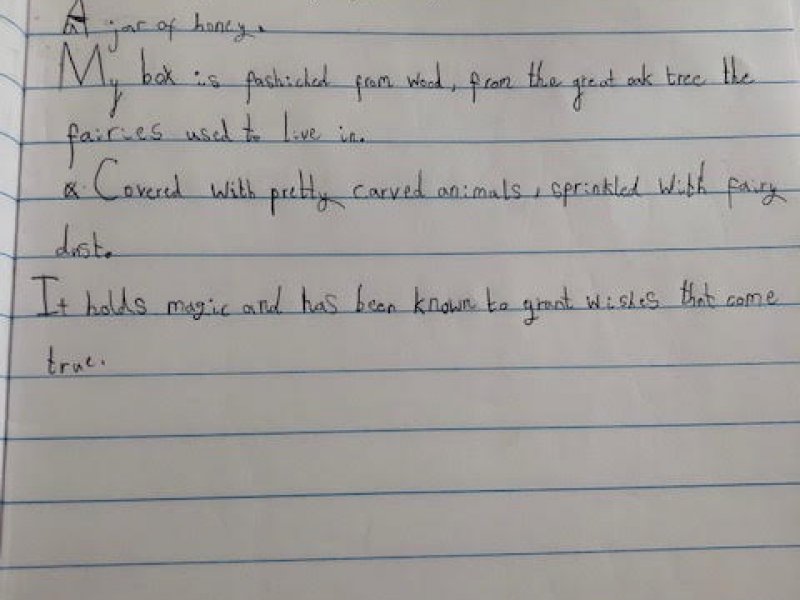 A jar of honey.
My box is fashicked from wood, from the great oak tree the
fairies used to live in.
Covered with pretty carved animals, sprinkled with fairy
dust.
It holds magic and has been known to grant wishes that come
true.